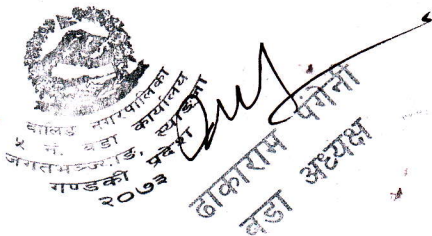 वालिङ नगरपालिका
५ नं. वडा कार्यालय
जगतभञ्ज्याङ, स्याङ्जा
गण्डकी प्रदेश
२०७३
ढाकाराम पंगेनी
वडा अध्यक्ष